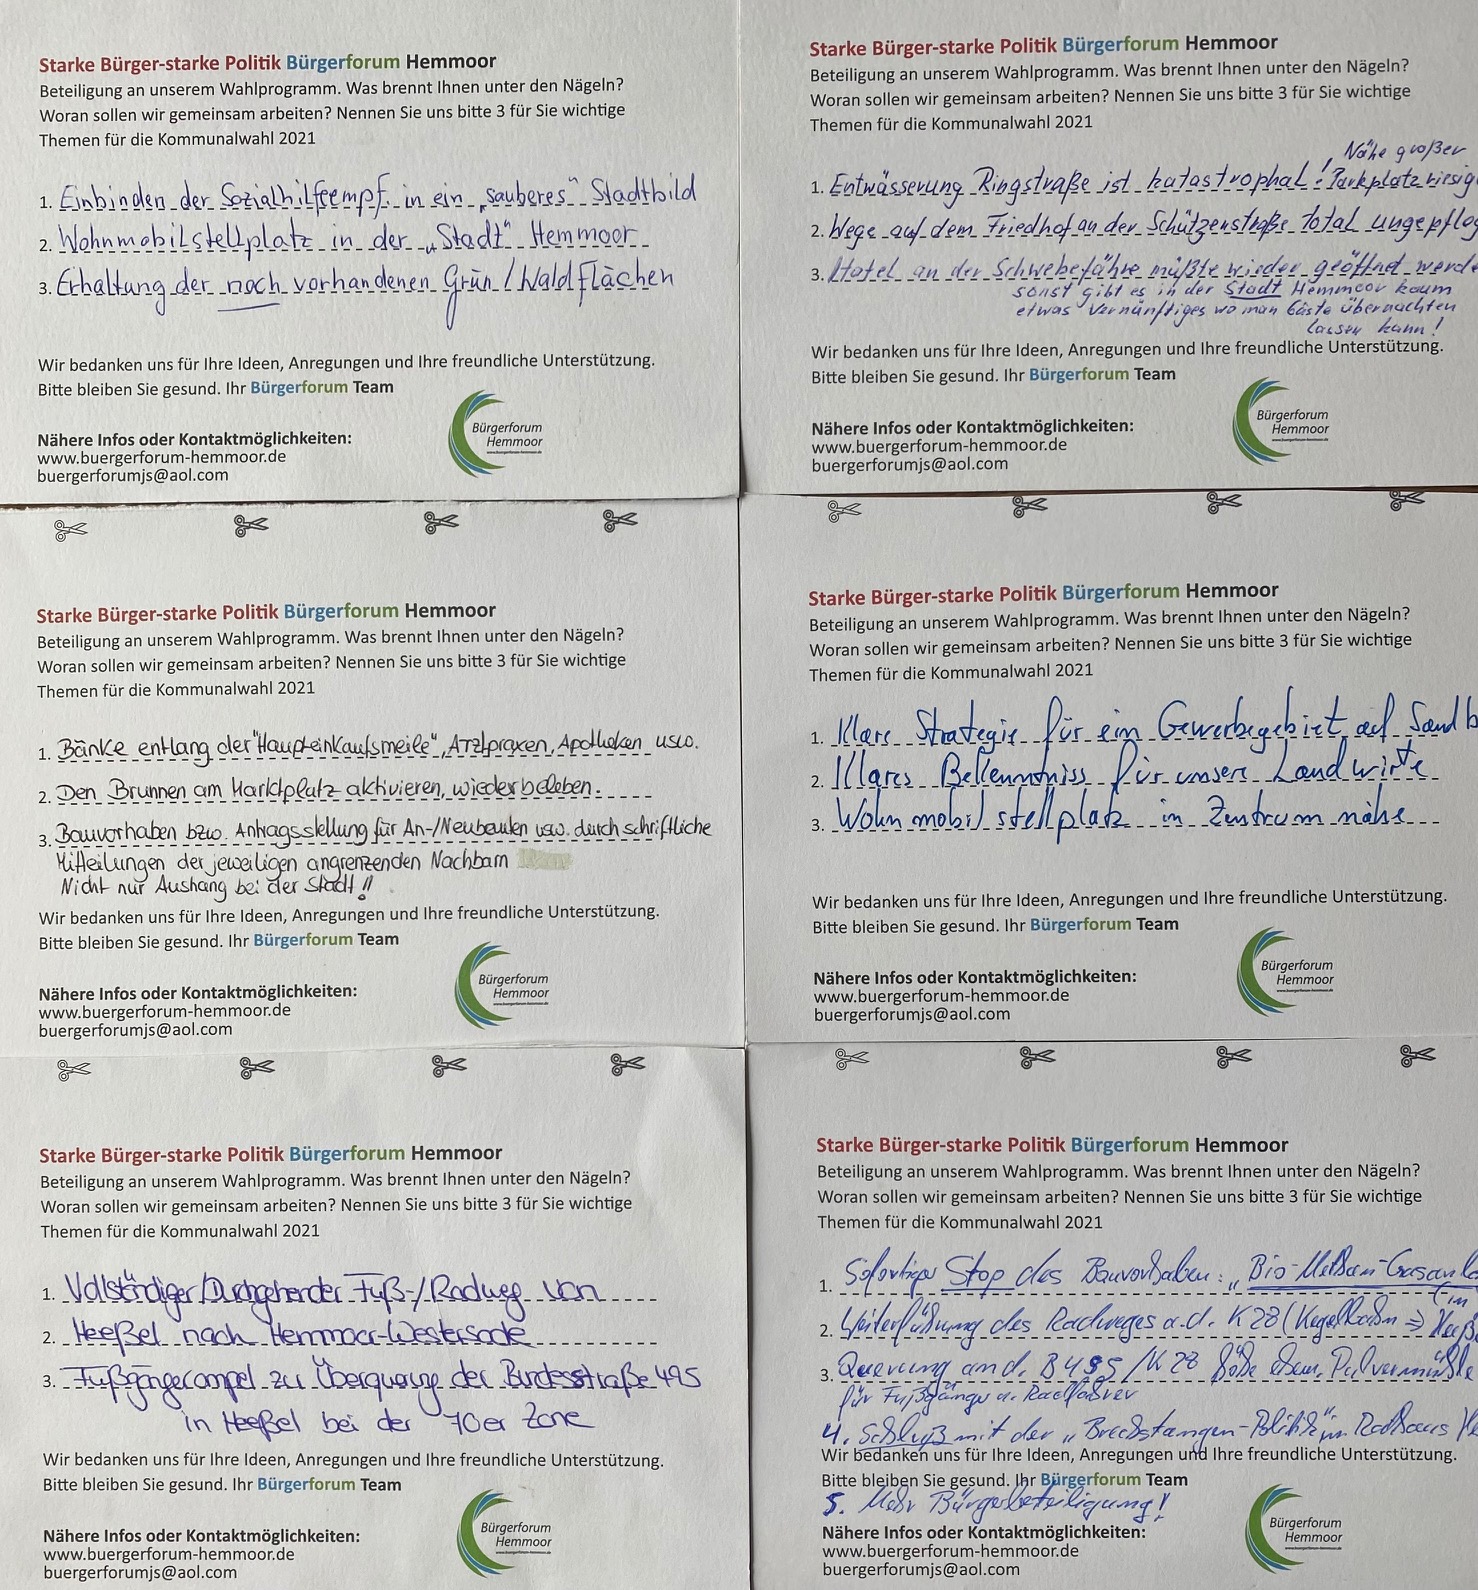 Starke Bürger-starke Politik Bürgerforum Hemmoor
Beteiligung an unserem Wahlprogramm. Was brennt Ihnen unter den Nägeln?
Woran sollen wir gemeinsam arbeiten? Nennen Sie uns bitte 3 für Sie wichtige
Themen für die Kommunalwahl 2021
1. Einbinden der Sozialhilfeempf. in ein „sauberes" Stadtbild
2. Wohnmobilstellplatz in der „Stadt" Hemmoor
3. Erhaltung der noch vorhandenen Grün/Waldflächen
Wir bedanken uns für Ihre Ideen, Anregungen und Ihre freundliche Unterstützung.
Bitte bleiben Sie gesund. Ihr Bürgerforum Team
Nähere Infos oder Kontaktmöglichkeiten:
www.buergerforum-hemmoor.de
buergerforumjs@aol.com
Bürgerforum
Hemmoor
www.buergerforum-hemmoor.de
Starke Bürger-starke Politik Bürgerforum Hemmoor
Beteiligung an unserem Wahlprogramm. Was brennt Ihnen unter den Nägeln?
Woran sollen wir gemeinsam arbeiten? Nennen Sie uns bitte 3 für Sie wichtige
Themen für die Kommunalwahl 2021
Nähe großer
1. Entwässerung Ringstraße ist katastrophal! Parkplatz
2. Wege auf dem Friedhof an der Schützenstraße total ungepfleg
3. Hotel an der Schwebefähre müßte wieder geöffnet werde
sonst gibt es in der Stadt Hemmoor kaum
etwas Vernünftiges wo man Gäste übernachten
lassen kann!
Wir bedanken uns für Ihre Ideen, Anregungen und Ihre freundliche Unterstützung.
Bitte bleiben Sie gesund. Ihr Bürgerforum Team
Nähere Infos oder Kontaktmöglichkeiten:
www.buergerforum-hemmoor.de
buergerforumjs@aol.com
Bürgerforum
Hemmoor
www.buergerforum-hemmoor.de
Starke Bürger-starke Politik Bürgerforum Hemmoor
Beteiligung an unserem Wahlprogramm. Was brennt Ihnen unter den Nägeln?
Woran sollen wir gemeinsam arbeiten? Nennen Sie uns bitte 3 für Sie wichtige
Themen für die Kommunalwahl 2021
1. Bänke entlang der "Haupteinkaufsmeile", Arztpraxen, Apotheken usw.
2. Den Brunnen am Marktplatz aktivieren, wiederbeleben.
3. Bauvorhaben bzw. Antragsstellung für An-/Neubauten usw. durch schriftliche
Mitteilungen der jeweiligen angrenzenden Nachbarn
Nicht nur Aushang bei der Stadt!!
Wir bedanken uns für Ihre Ideen, Anregungen und Ihre freundliche Unterstützung.
Bitte bleiben Sie gesund. Ihr Bürgerforum Team
Nähere Infos oder Kontaktmöglichkeiten:
www.buergerforum-hemmoor.de
buergerforumjs@aol.com
Bürgerforum
Hemmoor
www.buergerforum-hemmoor.de
Starke Bürger-starke Politik Bürgerforum Hemmoor
Beteiligung an unserem Wahlprogramm. Was brennt Ihnen unter den Nägeln?
Woran sollen wir gemeinsam arbeiten? Nennen Sie uns bitte 3 für Sie wichtige
Themen für die Kommunalwahl 2021
1. Klare Strategie für ein Gewerbegebiet auf Sandb
2. Klares Bekenntniss für unsere Landwirte
3. Wohnmobil stellplatz in Zentrum nähe
Wir bedanken uns für Ihre Ideen, Anregungen und Ihre freundliche Unterstützung.
Bitte bleiben Sie gesund. Ihr Bürgerforum Team
Nähere Infos oder Kontaktmöglichkeiten:
www.buergerforum-hemmoor.de
buergerforumjs@aol.com
Bürgerforum
Hemmoor
www.buergerforum-hemmoor.de
Starke Bürger-starke Politik Bürgerforum Hemmoor
Beteiligung an unserem Wahlprogramm. Was brennt Ihnen unter den Nägeln?
Woran sollen wir gemeinsam arbeiten? Nennen Sie uns bitte 3 für Sie wichtige
Themen für die Kommunalwahl 2021
1. Vollständiger/Durchgehender Fuß-/Radweg von
2. Heeßel nach Hemmoor-Westersode
3. Fußgängerampel zu Überquerung der Bundesstraße 495
in Heeßel bei der 70er Zone
Wir bedanken uns für Ihre Ideen, Anregungen und Ihre freundliche Unterstützung.
Bitte bleiben Sie gesund. Ihr Bürgerforum Team
Nähere Infos oder Kontaktmöglichkeiten:
www.buergerforum-hemmoor.de
buergerforumjs@aol.com
Bürgerforum
Hemmoor
www.buergerforum-hemmoor.de
Starke Bürger-starke Politik Bürgerforum Hemmoor
Beteiligung an unserem Wahlprogramm. Was brennt Ihnen unter den Nägeln?
Woran sollen wir gemeinsam arbeiten? Nennen Sie uns bitte 3 für Sie wichtige
Themen für die Kommunalwahl 2021
1. Sofortiger Stop des Bauvorhaben: „Bio-Methan-Gasanla
(in
2. Weiterführung des Radweges a.d. K 28 (Kegelbahn ⇒ Heeß
3. Querung an d. B 495/K 28 Höhe ehem. Pulvermühle
für Fußgänger u. Radfahrer
4. Schluß mit der „Brechstangen-Politik" im Rathaus
Wir bedanken uns für Ihre Ideen, Anregungen und Ihre freundliche Unterstützung.
Bitte bleiben Sie gesund. Ihr Bürgerforum Team
5. Mehr Bürgerbeteiligung!
Nähere Infos oder Kontaktmöglichkeiten:
www.buergerforum-hemmoor.de
buergerforumjs@aol.com
Bürgerforum
Hemmoor
www.buergerforum-hemmoor.de